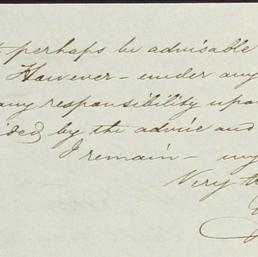 perhaps be advisable
However - under any
any responsibility upon
by the advice and
I remain - my
Very